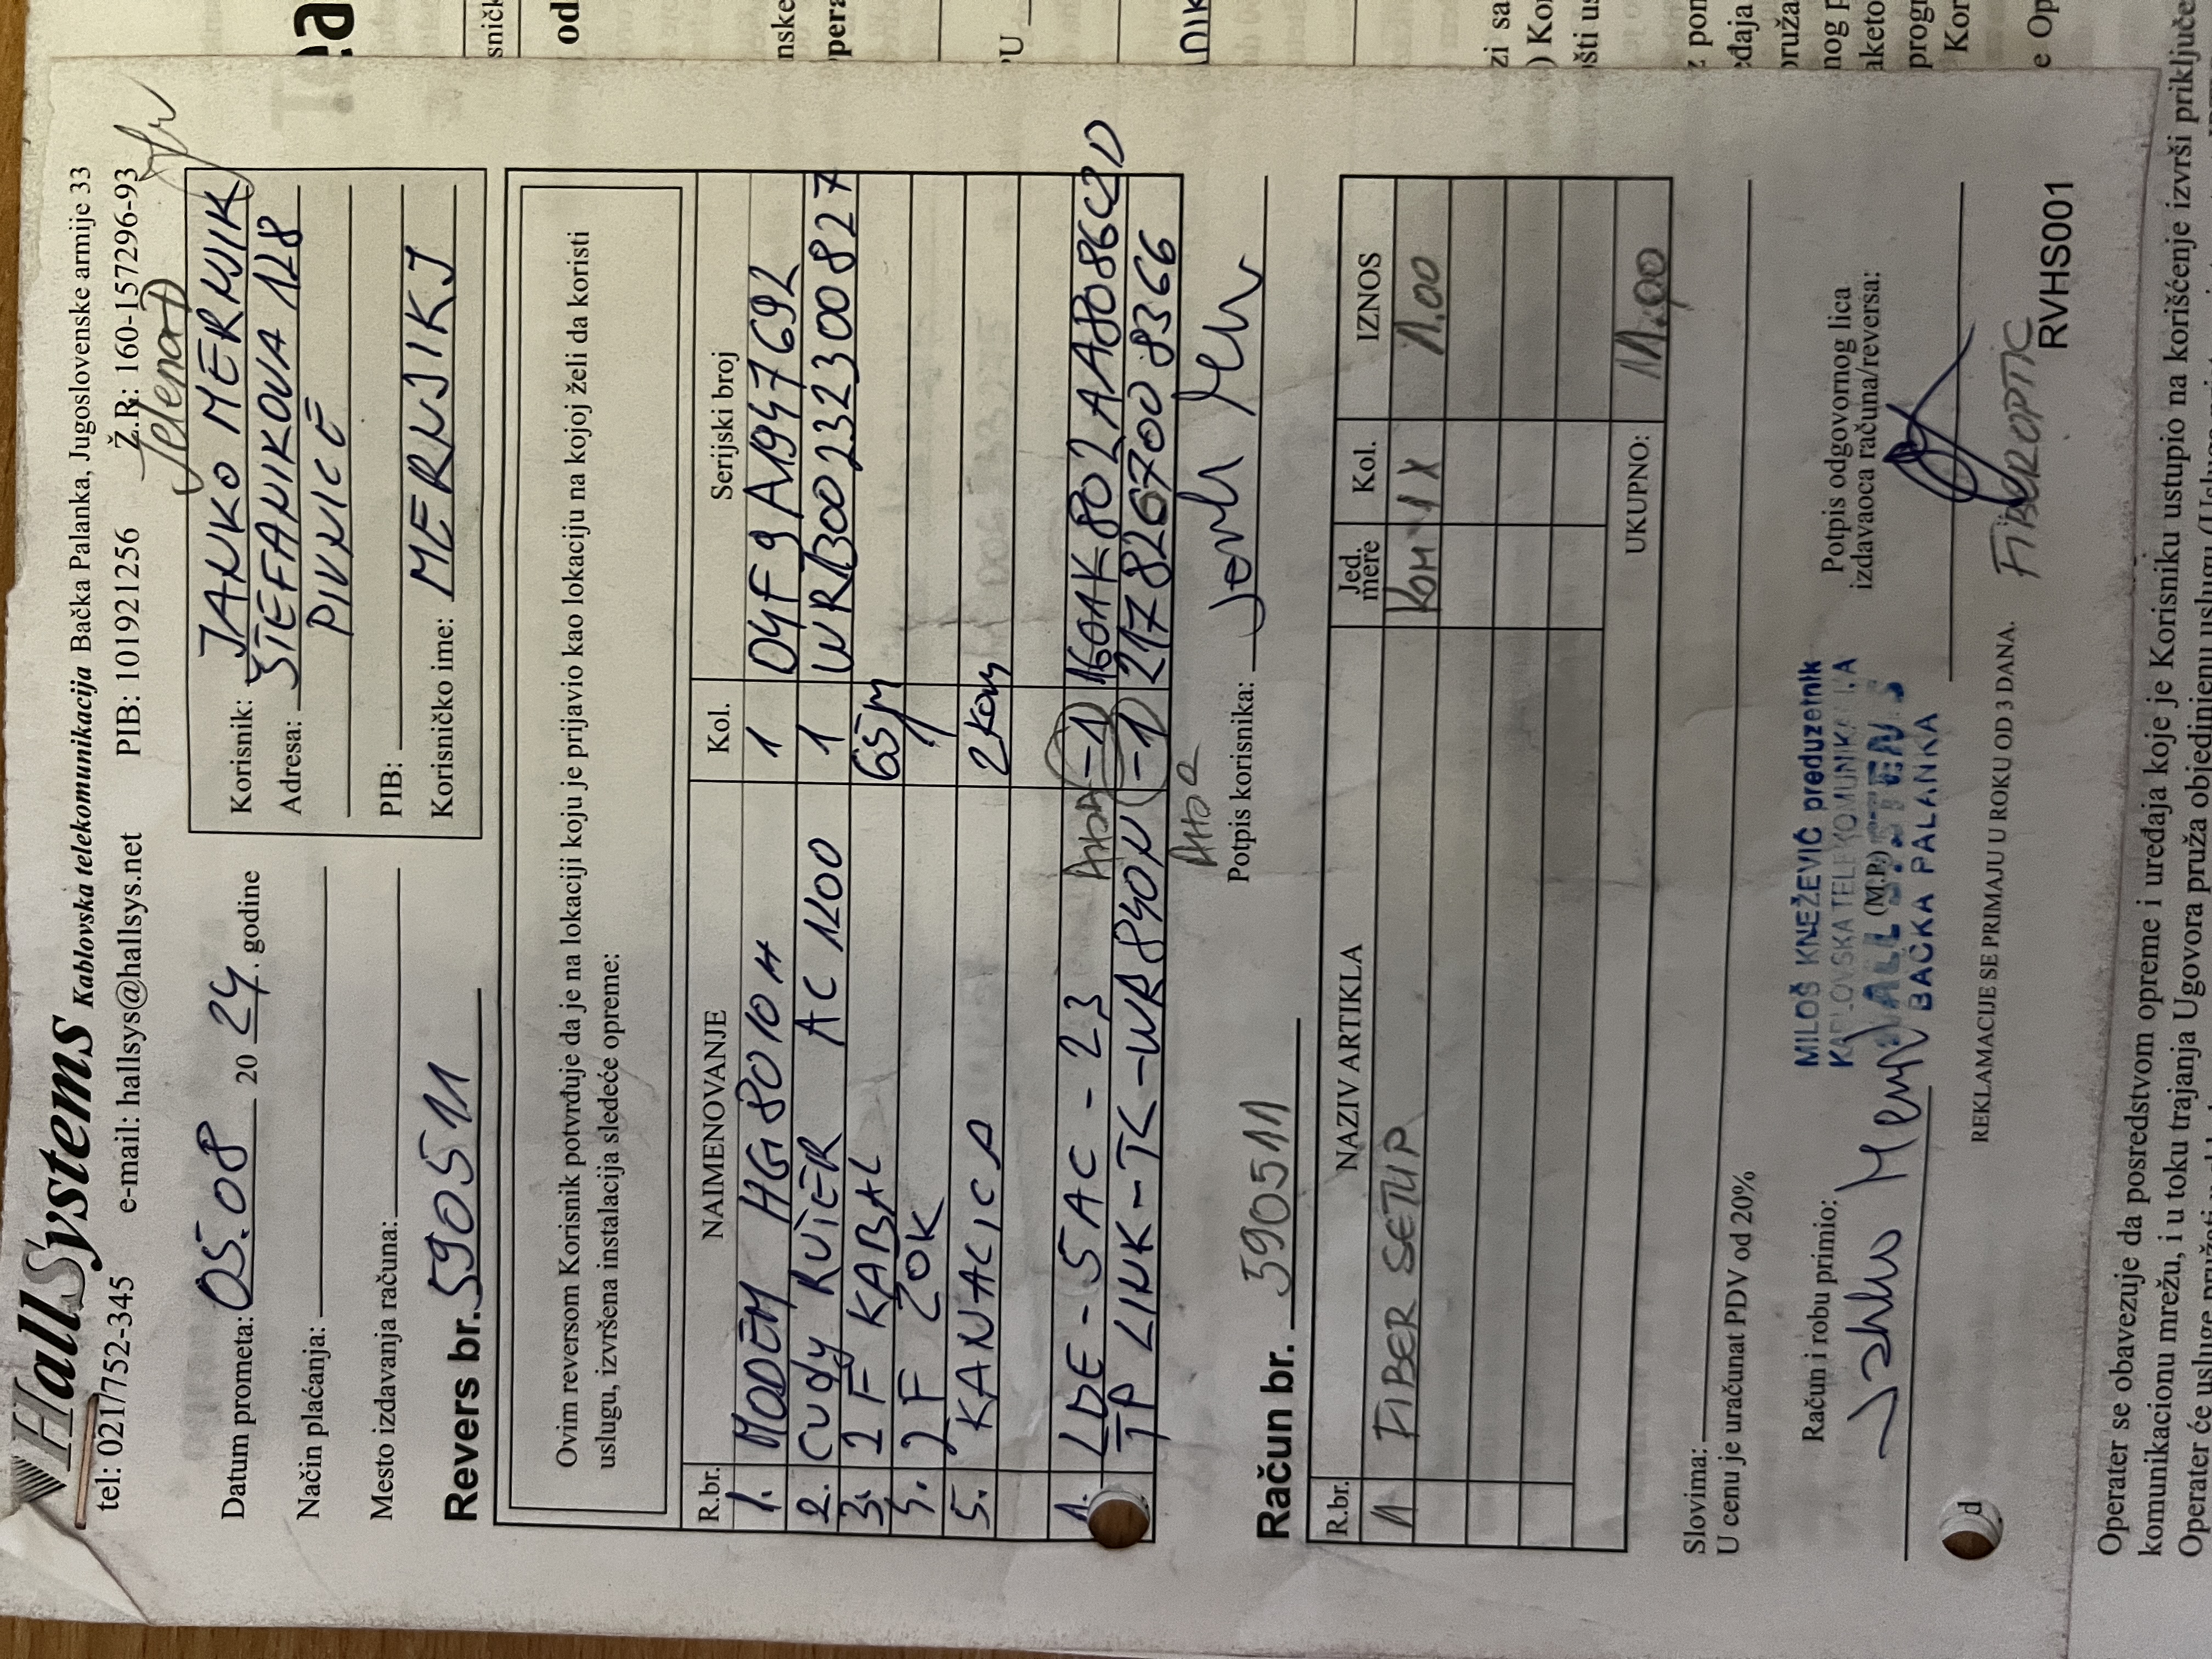 HallSystems Kablovska telekomunikacija Bačka Palanka, Jugoslovenske armije 33
tel: 021/752-345 e-mail: hallsys@hallsys.net PIB: 101921256 Ž.R: 160-157296-93
Jelena D
Datum prometa: 05.08 20 24. godine
Način plaćanja:
Mesto izdavanja računa:
Revers br. 590511
Korisnik: JANKO MERNJIK
Adresa: ŠTEFANIKOVA 128
PIVNICE
PIB:
Korisničko ime: MERNJIKJ
Ovim reversom Korisnik potvrđuje da je na lokaciji koju je prijavio kao lokaciju na kojoj želi da koristi
uslugu, izvršena instalacija sledeće opreme:
R.br. NAIMENOVANJE Kol. Serijski broj
1. MODEM HG8010H 1 D4F9A1947692
2. Cudy RUTER AC 1200 1 WR1300232300827
3. 2F KABAL 65m
4. 2F ZOK 1
5. KANALICA 2kom
1. LDE-5AC-23 -1 160AK802AA8086C2D
TP LINK-TL-WR840N -1 2178267008366
Potpis korisnika:
Račun br. 590511
R.br. NAZIV ARTIKLA Jed. mere Kol. IZNOS
1 FIBER SETUP KOM 1X 1.00
UKUPNO: 1.00
Slovima:
U cenu je uračunat PDV od 20%
Račun i robu primio:
MILOŠ KNEŽEVIĆ preduzetnik
KABLOVSKA TELEKOMUNIKACIJA
HALL SYSTEMS
(M.P.)
BAČKA PALANKA
Potpis odgovornog lica
izdavaoca računa/reversa:
REKLAMACIJE SE PRIMAJU U ROKU OD 3 DANA.
FIBEROPTIC
RVHS001
Operater se obavezuje da posredstvom opreme i uređaja koje je Korisniku ustupio na korišćenje izvrši priključe
komunikacionu mrežu, i u toku trajanja Ugovora pruža objedinjenu uslugu